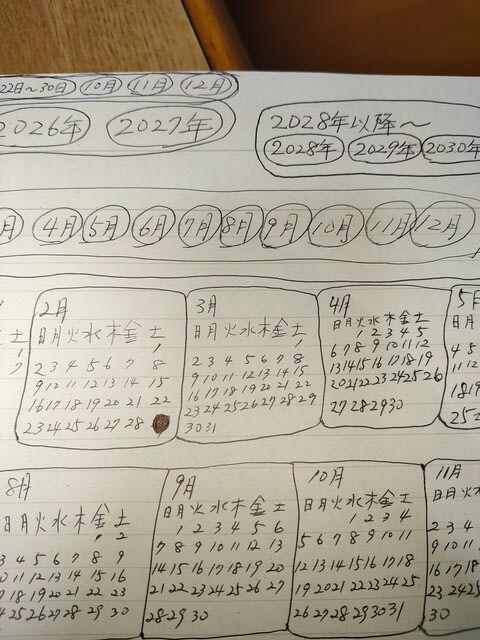 22日~30日 10月 11月 12月
2026年 2027年
2028年以降~
2028年 2029年 2030年
月 4月 5月 6月 7月 8月 9月 10月 11月 12月
土
1
2月
日月火水木金土
1
2 3 4 5 6 7 8
9 10 11 12 13 14 15
16 17 18 19 20 21 22
23 24 25 26 27 28
3月
日月火水木金土
1
2 3 4 5 6 7 8
9 10 11 12 13 14 15
16 17 18 19 20 21 22
23 24 25 26 27 28 29
30 31
4月
日月火水木金土
1 2 3 4 5
6 7 8 9 10 11 12
13 14 15 16 17 18 19
20 21 22 23 24 25 26
27 28 29 30
5月
日月
4 5
11 12
18 19
25 2
8月
日月火水木金土
1 2
3 4 5 6 7 8 9
10 11 12 13 14 15 16
17 18 19 20 21 22 23
24 25 26 27 28 29 30
9月
日月火水木金土
1 2 3 4 5 6
7 8 9 10 11 12 13
14 15 16 17 18 19 20
21 22 23 24 25 26 27
28 29 30
10月
日月火水木金土
1 2 3 4
5 6 7 8 9 10 11
12 13 14 15 16 17 18
19 20 21 22 23 24 25
26 27 28 29 30 31
11月
日月火
2 3 4
9 10 11
16 17 18
23 24 25
30